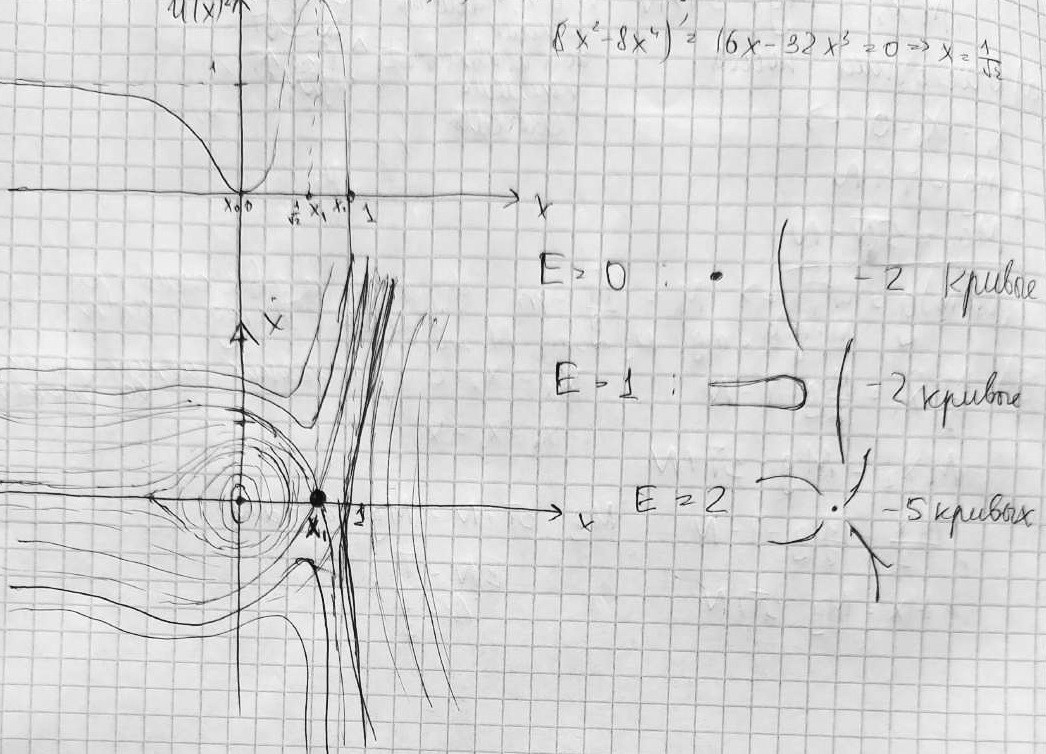 U(x)
8x² - 8x⁴)' = 16x - 32x³ = 0 => x = 1/√2
1
x₀ 0 1/√2 x₁ x₂ 1 x
E = 0 : - 2 кривые
ẋ
E = 1 : - 2 кривые
E = 2 - 5 кривых
x₁ 1 x